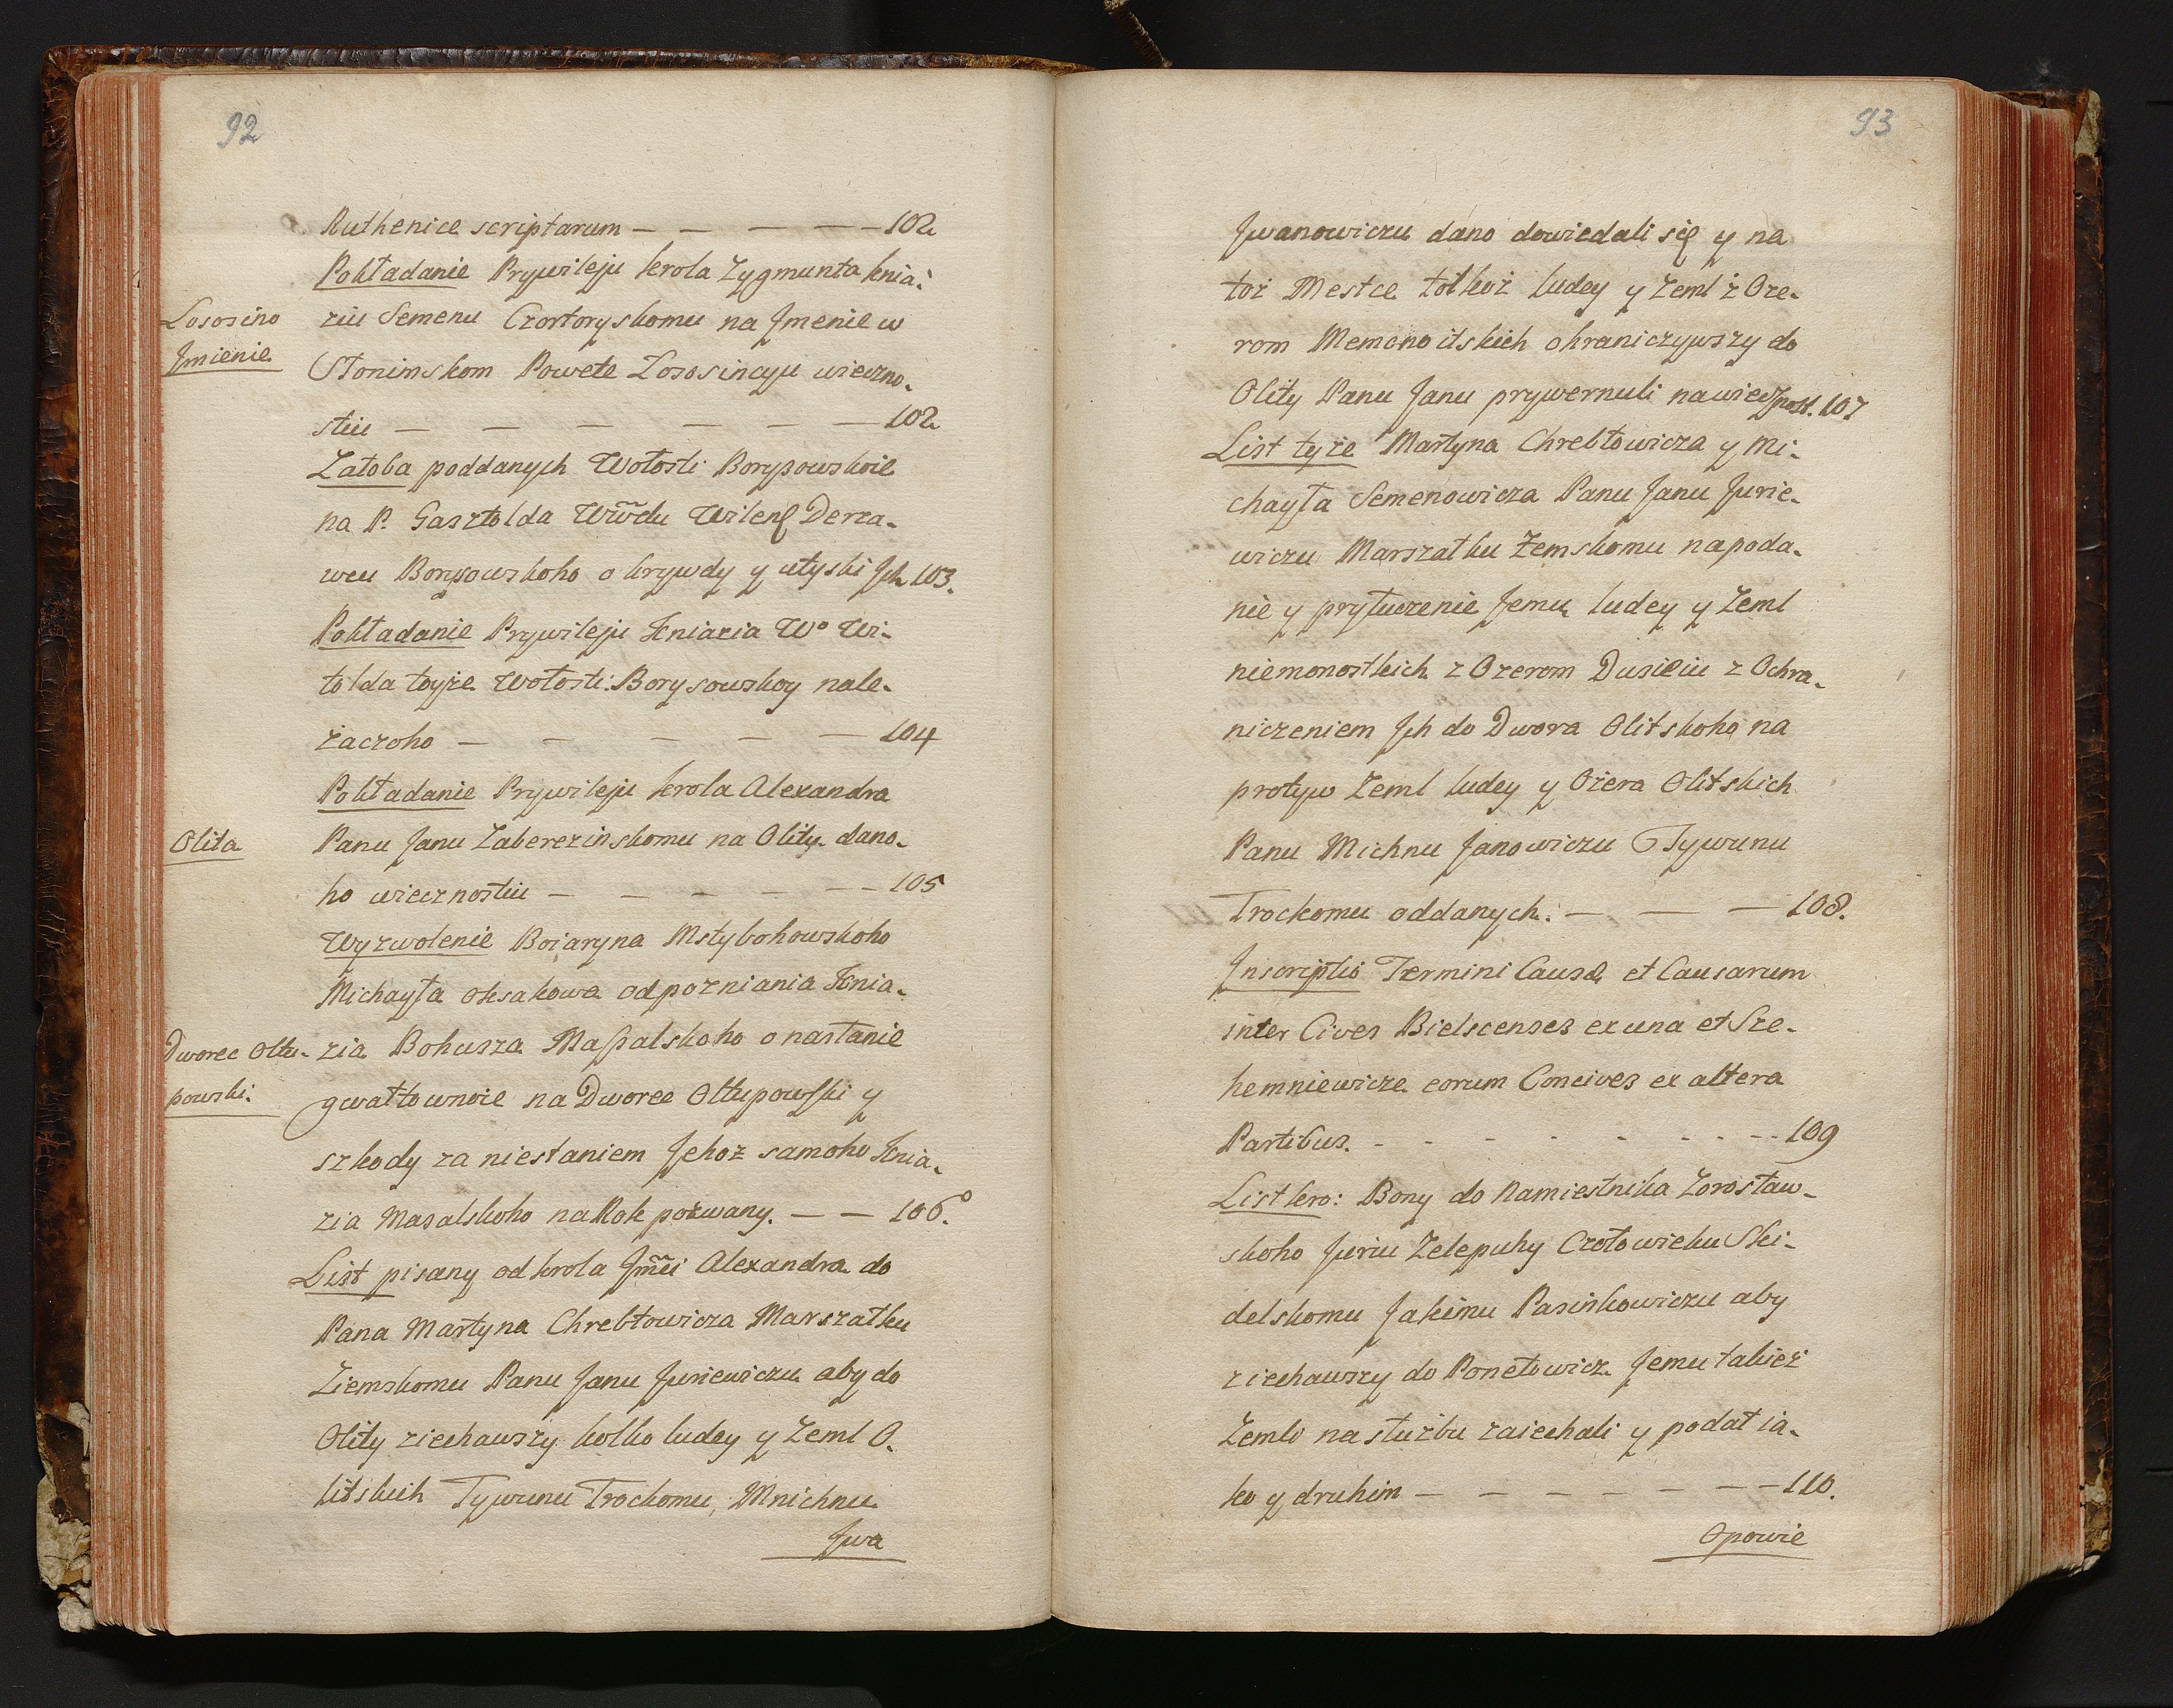 92
Ruthenice scriptarum — — — — — 102
Pokładanie Prywileju krola Zygmunta knia-
Lososino
Jmienie
ziu Semenu Czortoryskomu na Jmenie w
Słonimskom Powete Lososincyu wieczno-
stiu — — — — — — 102
Załoba poddanych Wołosti Borysowskoie
na P. Gasztolda Wwdu Wilens Derza-
wcu Borysowskoho o krywdy y utyski Jch 103.
Pokładanie Prywileju Kniazia Wo Wi-
tolda toyże Wołosti Borysowskoy nale-
żaczoho — — — — — 104
Pokładanie Prywileju krola Alexandra
Olita
Panu Janu Zaberezinskomu na Olity dano-
ho wiecznostiu — — — — — 105
Wyzwolenie Boiaryna Mstybohowskoho
Michayła Oksakowa od pozniania Knia-
Dworec Ołtu-
powski.
zia Bohusza Massalskoho o nasłanie
gwałtownoie na Dworec Ołtupowski y
szkody za niestaniem Jehoż samoho Knia-
zia Masalskoho na Rok pozwany. — — 106.
List pisany od krola Jmci Alexandra do
Pana Martyna Chrebtowicza Marszałku
Ziemskomu Panu Janu Juriewiczu aby do
Olity ziechawszy kolko ludey y Zeml O-
litskich Tywunu Trockomu, Mnichnu
Jwa
93
Jwanowiczu dano dowiedali się y na
toż Mestce tolkoż ludey y Zeml z Oze-
rom Memonoitskich ohraniczywszy do
Olity Panu Janu prywernuli nawiecznost. 107
List tyże Martyna Chrebtowicza y Mi-
chayła Semenowicza Panu Janu Jurie-
wiczu Marszałku Zemskomu na poda-
nie y pryłuczenie Jemu ludey y Zeml
niemonostkich z Ozerom Dusieiu z Ochra-
niczeniem Jch do Dwora Olitskoho na
protyw Zeml ludey y Ozera Olitskich
Panu Michnu Janowiczu Tywunu
Trockomu oddanych. — — — 108.
Jnscriptio Termini Causæ et Causarum
inter Cives Bielscenses ex una et Sze-
hemniewicze eorum Concives ex altera
Partibus. - - - - - - - - 109
List kro: Bony do Namiestnika Zorosław-
skoho Juriu Zelepuhy Czołowieku Ski-
delskomu Jakimu Pasinkowiczu aby
ziechawszy do Ponetowicz Jemu takież
Zemli na służbu zaiechali y podał ia-
ko y druhim — — — — — — — 110.
Opowie